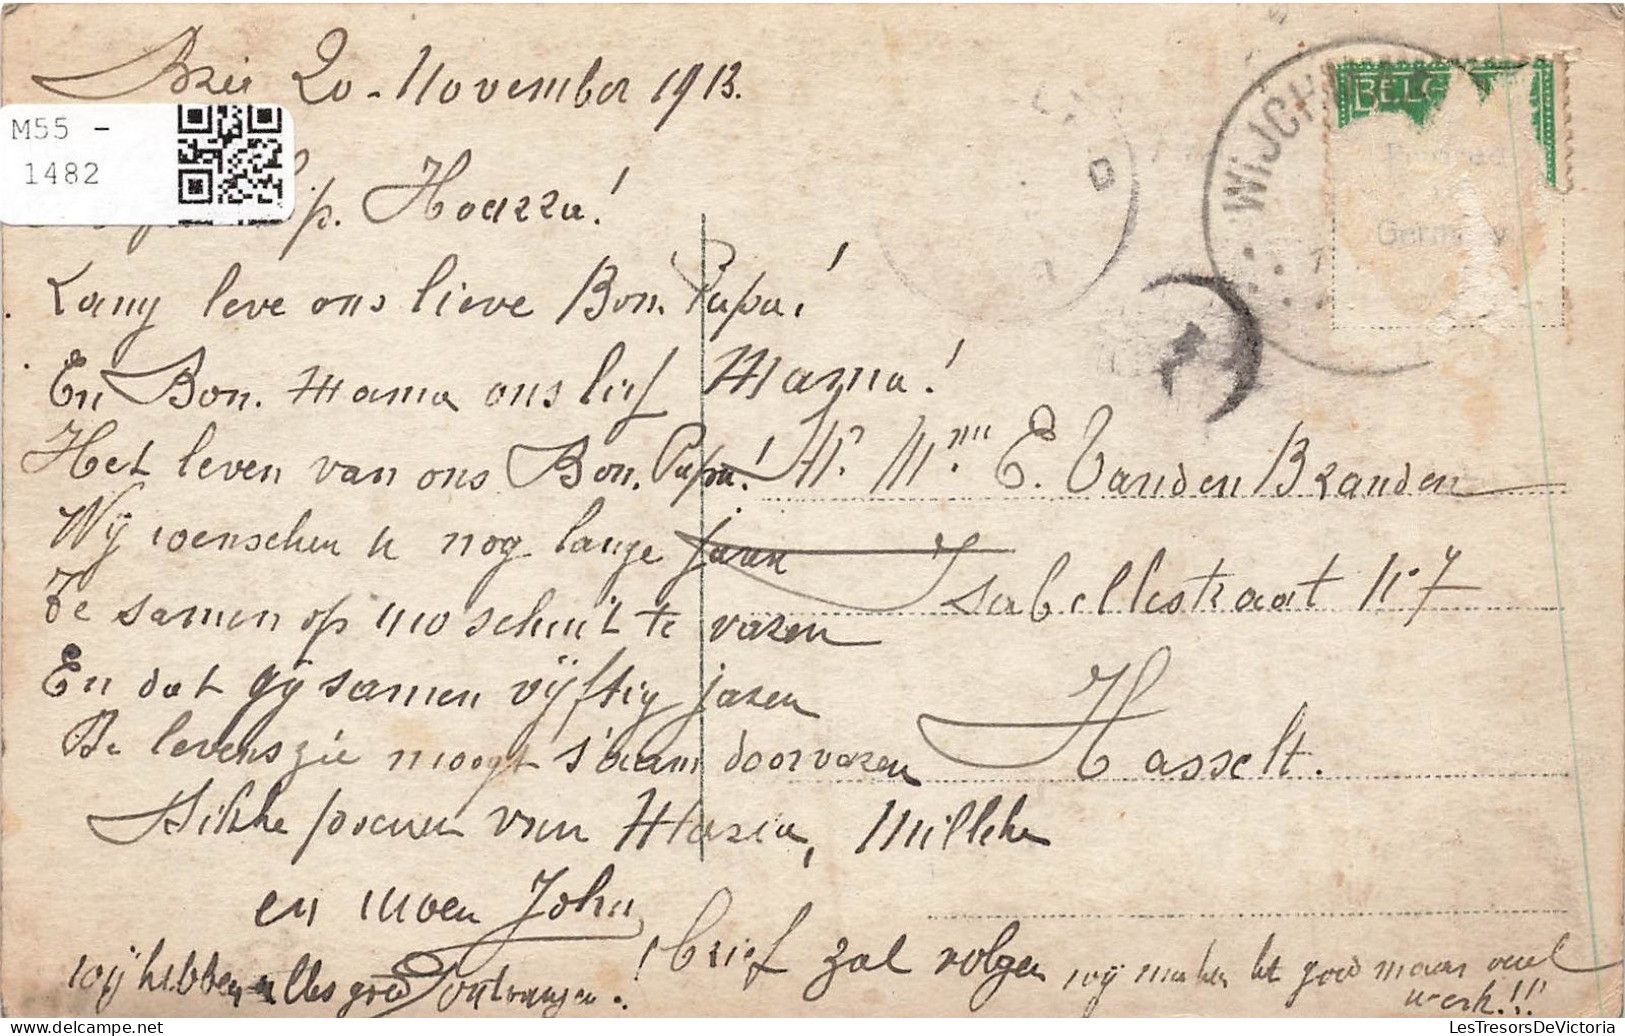 Bree 20 - November 1913.
M55 -
1482
Hip. Hoezza!
Lang leve ons lieve Bon. Papa!
En Bon. Mama ons lief Mama!
Het leven van ons Bon. Papa!
Wij wenschen u nog lange jaren
Te samen op uw schuit te varen
En dat gij samen vijftig jaren
De levenszie moogt s'aam doorvaren
Dikke poenen van Maria, Milleke
en uwen John
wij hebben alles goed ontvangen.
! brief zal volgen wij maken het goed maar veel
werk!!!
Mr. Mme E. Vanden Branden
Isabellestraat N. 7
Hasselt.
WIJCHMAAL
BELG
Printed
in
Germany
LesTresorsDeVictoria